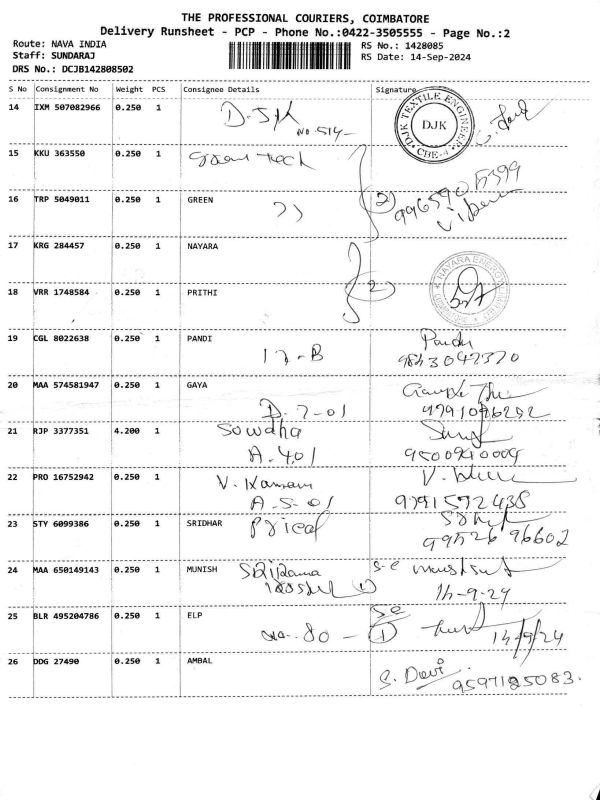 THE PROFESSIONAL COURIERS, COIMBATORE
Delivery Runsheet - PCP - Phone No.:0422-3505555 - Page No.:2
Route: NAVA INDIA
RS No.: 1428085
Staff: SUNDARAJ
RS Date: 14-Sep-2024
DRS No.: DCJB142808502
S No Consignment No Weight PCS Consignee Details Signature
14 IXM 507082966 0.250 1
No 514-
DJK TEXTILE ENGINEER
DJK
CBE-4
15 KKU 363550 0.250 1
Green tech
16 TRP 5049011 0.250 1 GREEN
2
17 KRG 284457 0.250 1 NAYARA
NAYARA ENERGY
18 VRR 1748584 0.250 1 PRITHI
2
19 CGL 8022638 0.250 1 PANDI
17-B
Pandi
9843042370
20 MAA 574581947 0.250 1 GAYA
D-7-01
9791096292
21 RJP 3377351 4.200 1 Sowdha
A.401
22 PRO 16752942 0.250 1 V.
A-5-01
9791592438
23 STY 6099386 0.250 1 SRIDHAR
99526 96602
24 MAA 650149143 0.250 1 MUNISH
14-9-24
25 BLR 495204786 0.250 1 ELP
80 - 1
14/9/24
26 DDG 27490 0.250 1 AMBAL
S. Devi
9597125083.